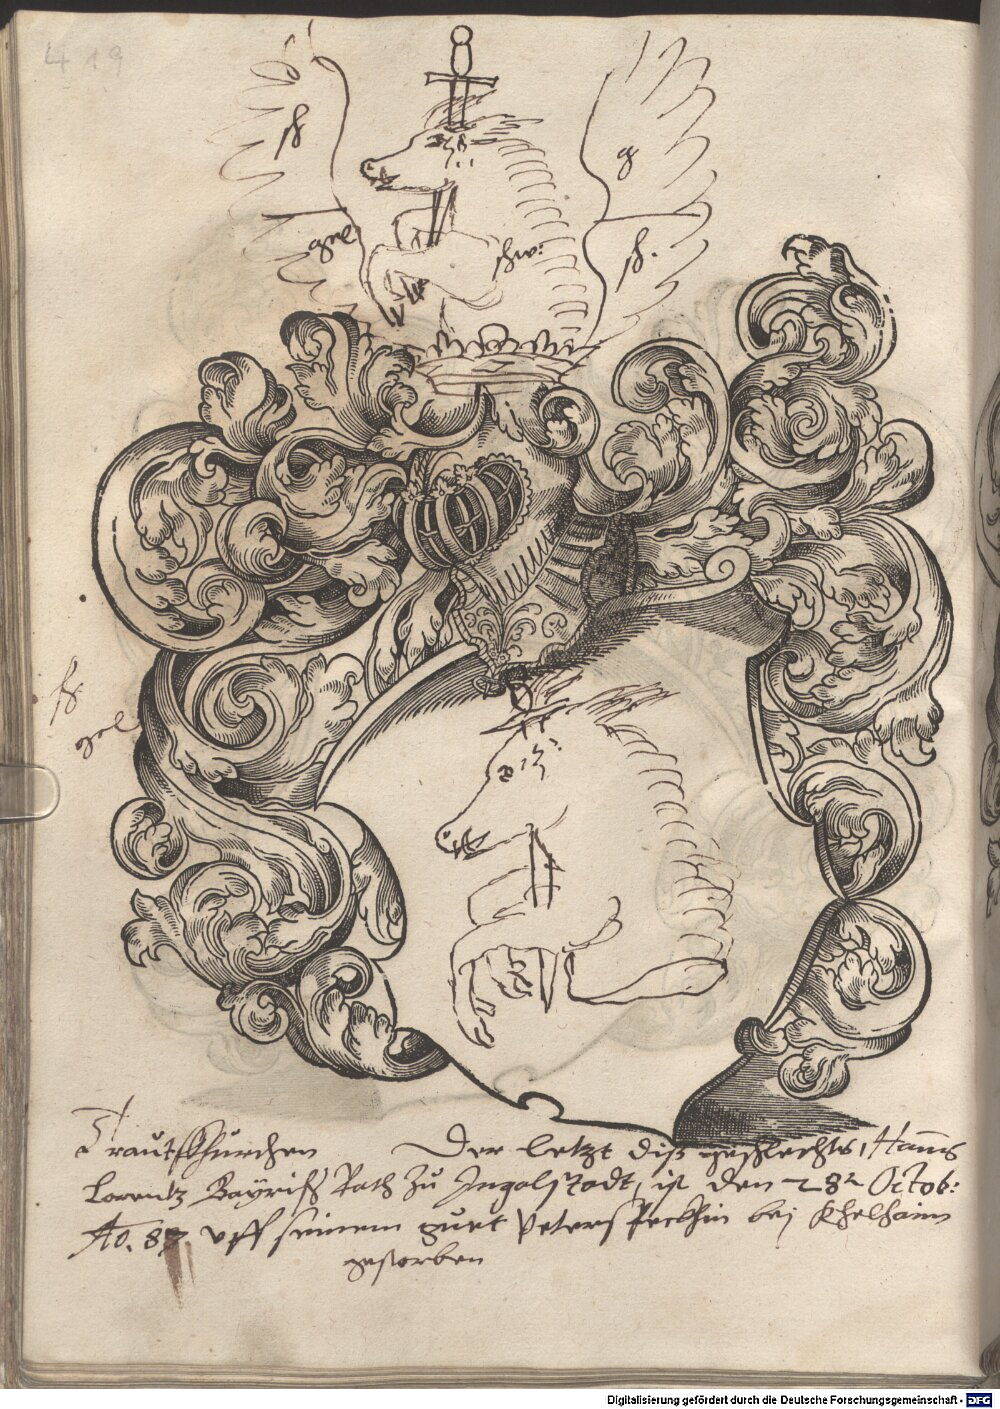 419
sch
g
gel
schw:
sch.
gel
Trautskhürchen Der letzt diß geschlechts, Hanns
Lorentz Bayrisch Rath zu Ingolstadt, ist den 28t Octob:
Ao. 87 uff seinem guet Peterspeckhin bej Khelhaim
gestorben
Digitalisierung gefördert durch die Deutsche Forschungsgemeinschaft - DFG